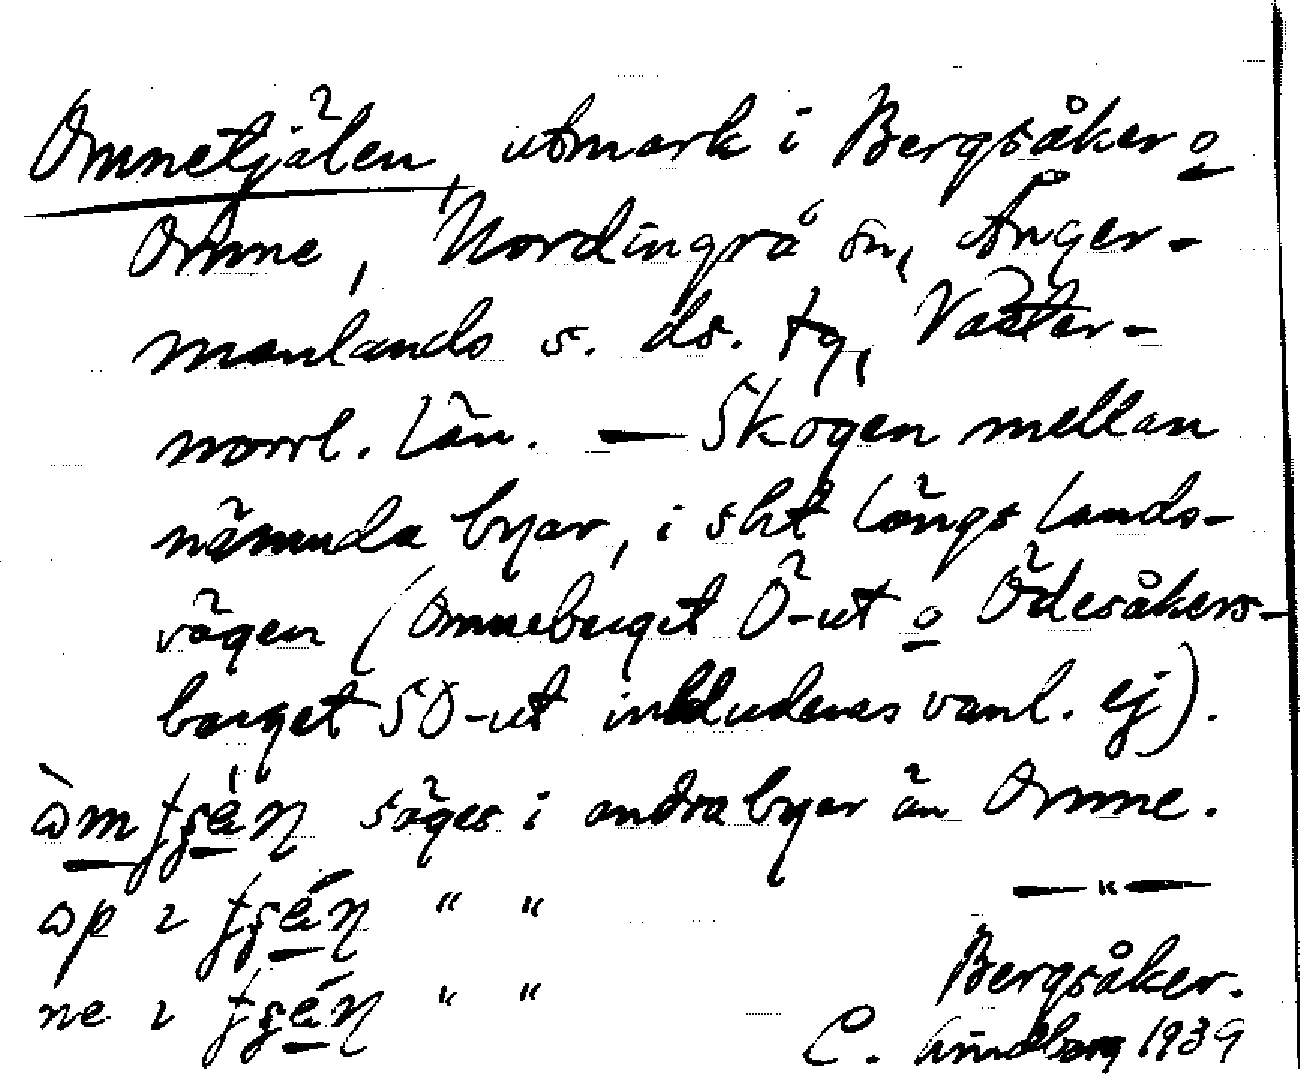 Omnetjälen, utmark i Bergsåker o
Omne, Nordingrå sn, Ånger-
manlands s. ds. tg, Väster-
norrl. län. — Skogen mellan
nämnda byar, i sht längs lands-
vägen (Omneberget Ö-ut o Ödesåkers-
berget SO-ut inkluderas vanl. ej).
säges i andra byar än Omne.
" "
" "
— " —
Bergsåker.
C. Lindberg 1939